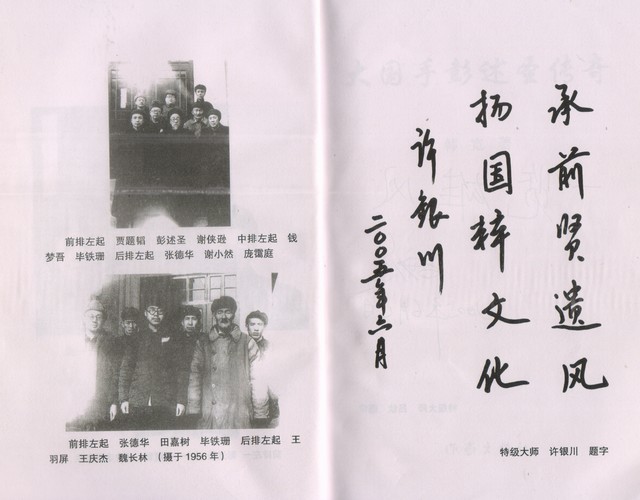 前排左起 贾题韬 彭述圣 谢侠逊 中排左起 钱
梦吾 毕铁珊 后排左起 张德华 谢小然 庞霭庭
前排左起 张德华 田嘉树 毕铁珊 后排左起 王
羽屏 王庆杰 魏长林 （摄于1956年）
承前贤遗风
扬国粹文化
许银川
二〇〇五年六月
特级大师 许银川 题字